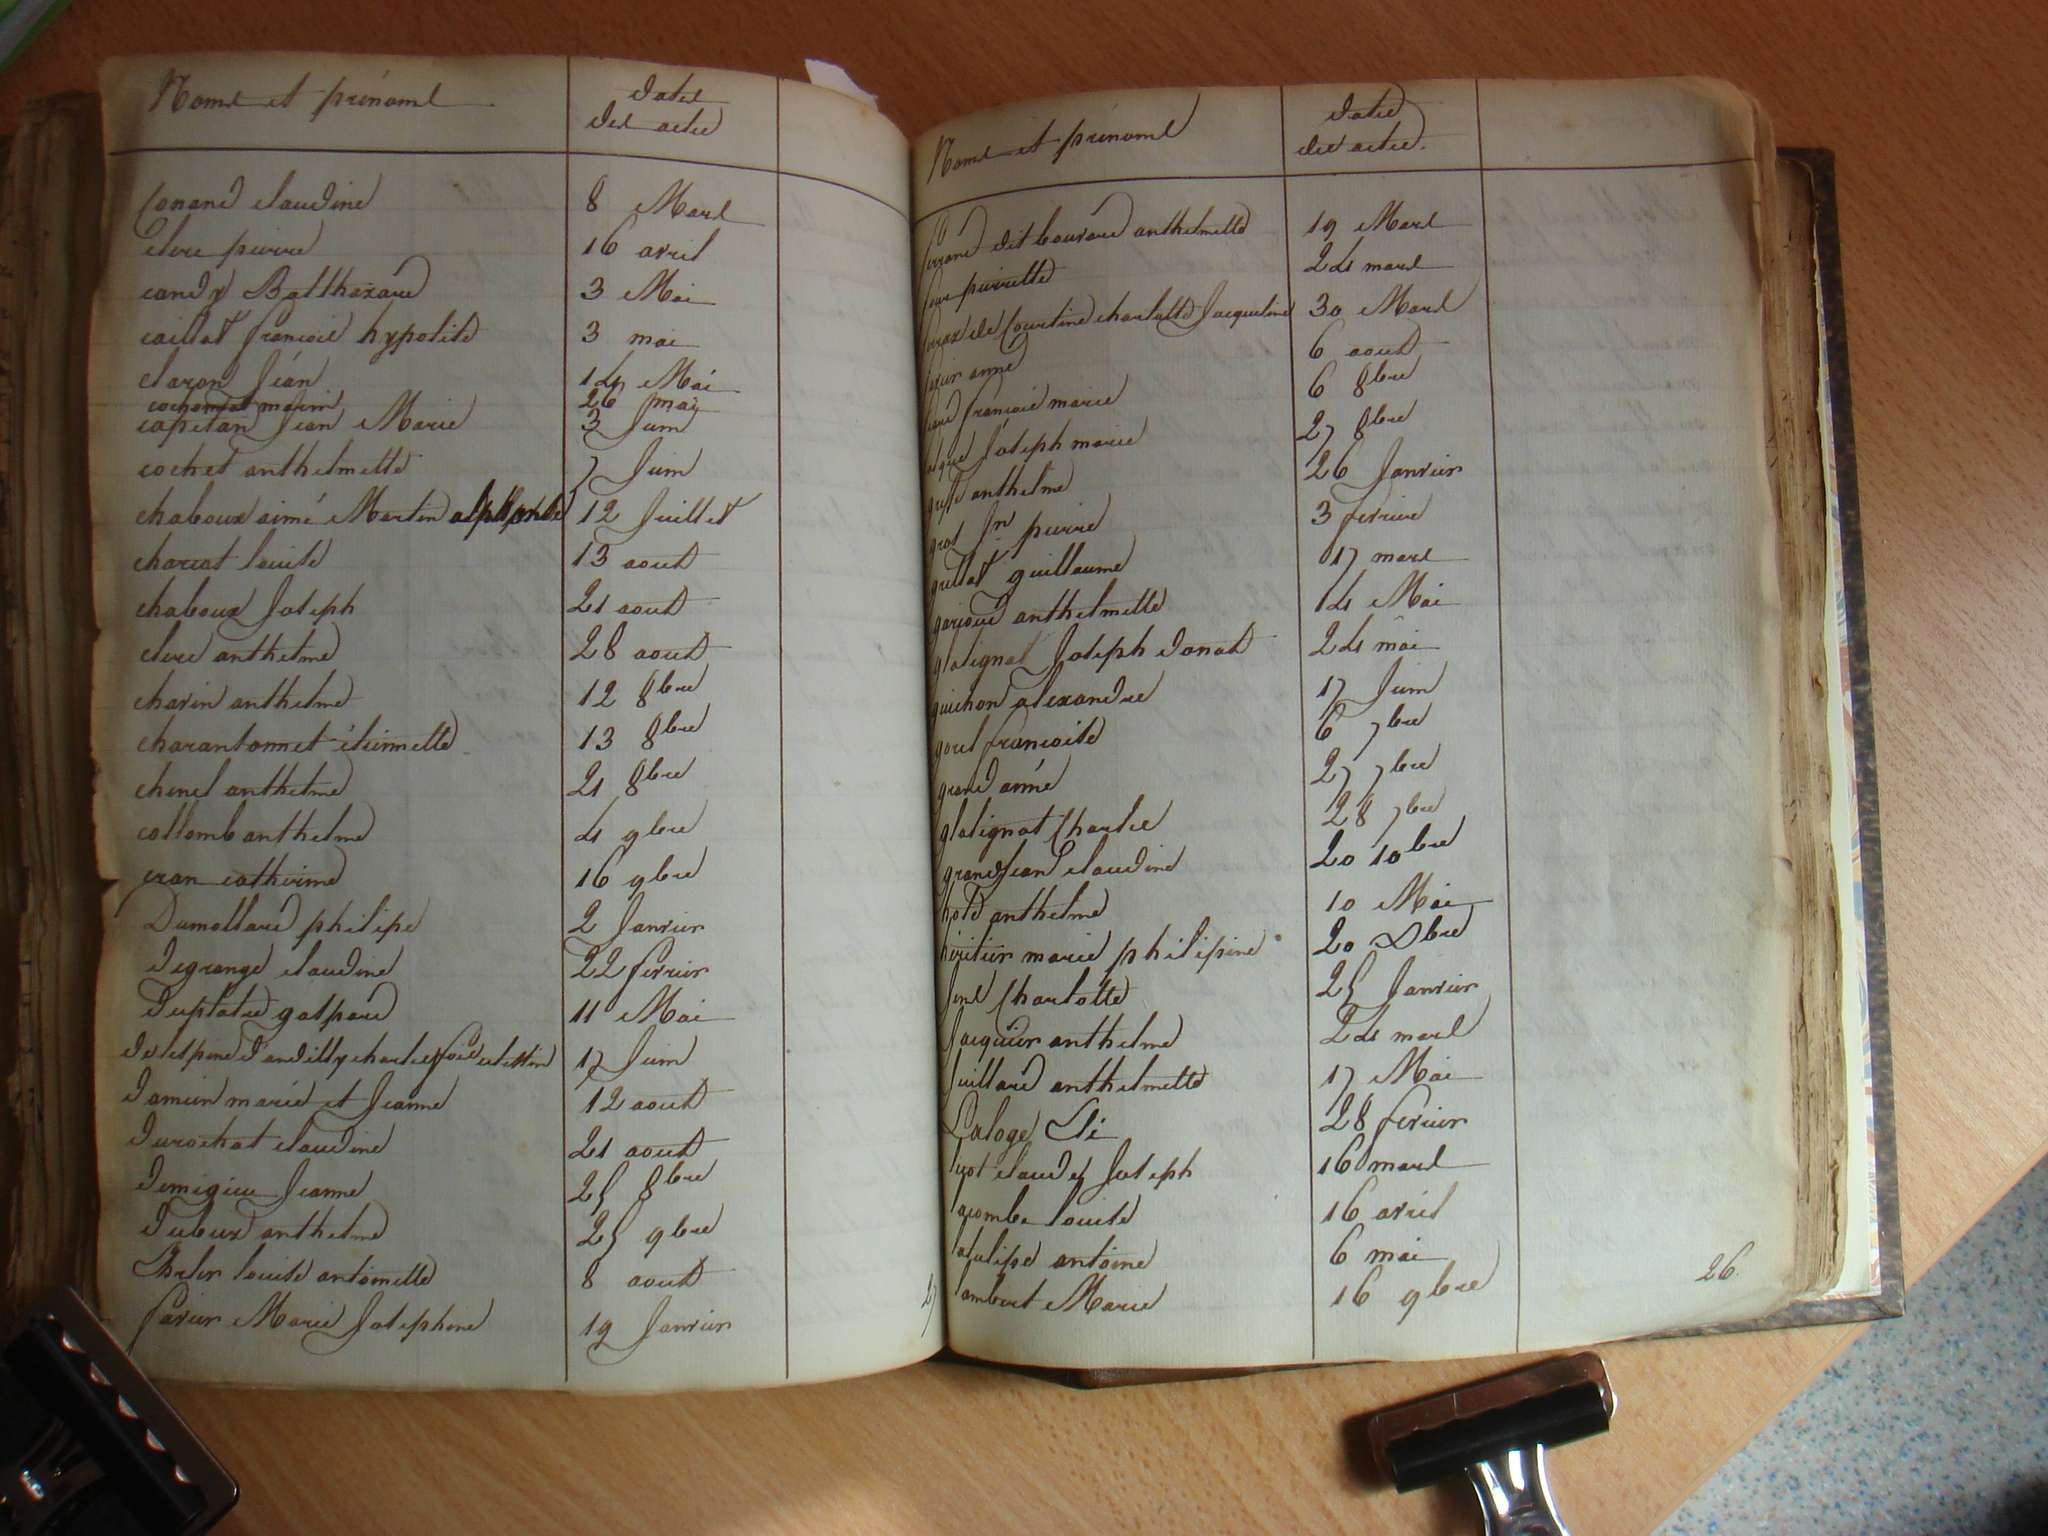 Noms et prénoms
dates
des actes
Conand claudine 8 Mars
clerc pierre 16 avril
candy Balthazard 3 Mai
caillat françois hypolite 3 mai
claron Jean 14 Mai
marin 26 mai
capitan Jean Marie 3 Juin
cochet anthelmette 7 Juin
chaboux aimé Martin alphonse 12 Juillet
charcot louise 13 aout
chaboux Joseph 21 aout
clerc anthelme 28 aout
charin anthelme 12 8bre
charantonnet étiennette 13 8bre
chenel anthelme 21 8bre
collomb anthelme 4 9bre
cran catherine 16 9bre
Dumollard philipe 2 Janvier
degrange claudine 22 fevrier
Duplatre gaspard 11 Mai
delespine d'andilly charles celestin 17 Juin
damein marie et Jeanne 12 aout
durochat claudine 21 aout
demigieu Jeanne 25 8bre
dubeux anthelme 25 9bre
louise antoinette 8 aout
favier Marie Josephine 19 Janvier
27
Noms et prénoms
dates
des actes.
ferrand dit bouvard anthelmette 19 Mars
pierrette 24 mars
de Courtine charlotte Jacqueline 30 Mars
anne 6 aout
françois marie 6 8bre
Joseph marie 27 8bre
anthelme 26 Janvier
gros Jn pierre 3 fevrier
guillot guillaume 17 mars
anthelmette 14 Mai
glatignat Joseph donat 24 mai
guichon alexandre 17 Juin
françoise 6 7bre
grand aimé 27 7bre
glatignat Charles 28 7bre
grandjean claudine 20 10bre
anthelme 10 Mai
héritier marie philipine 20 Xbre
Charlotte 25 Janvier
Jacquier anthelme 24 mars
Juillard anthelmette 17 Mai
Laloge 28 fevrier
claude Joseph 16 mars
lacombe louise 16 avril
latulipe antoine 6 mai
lambert Marie 16 9bre
26.